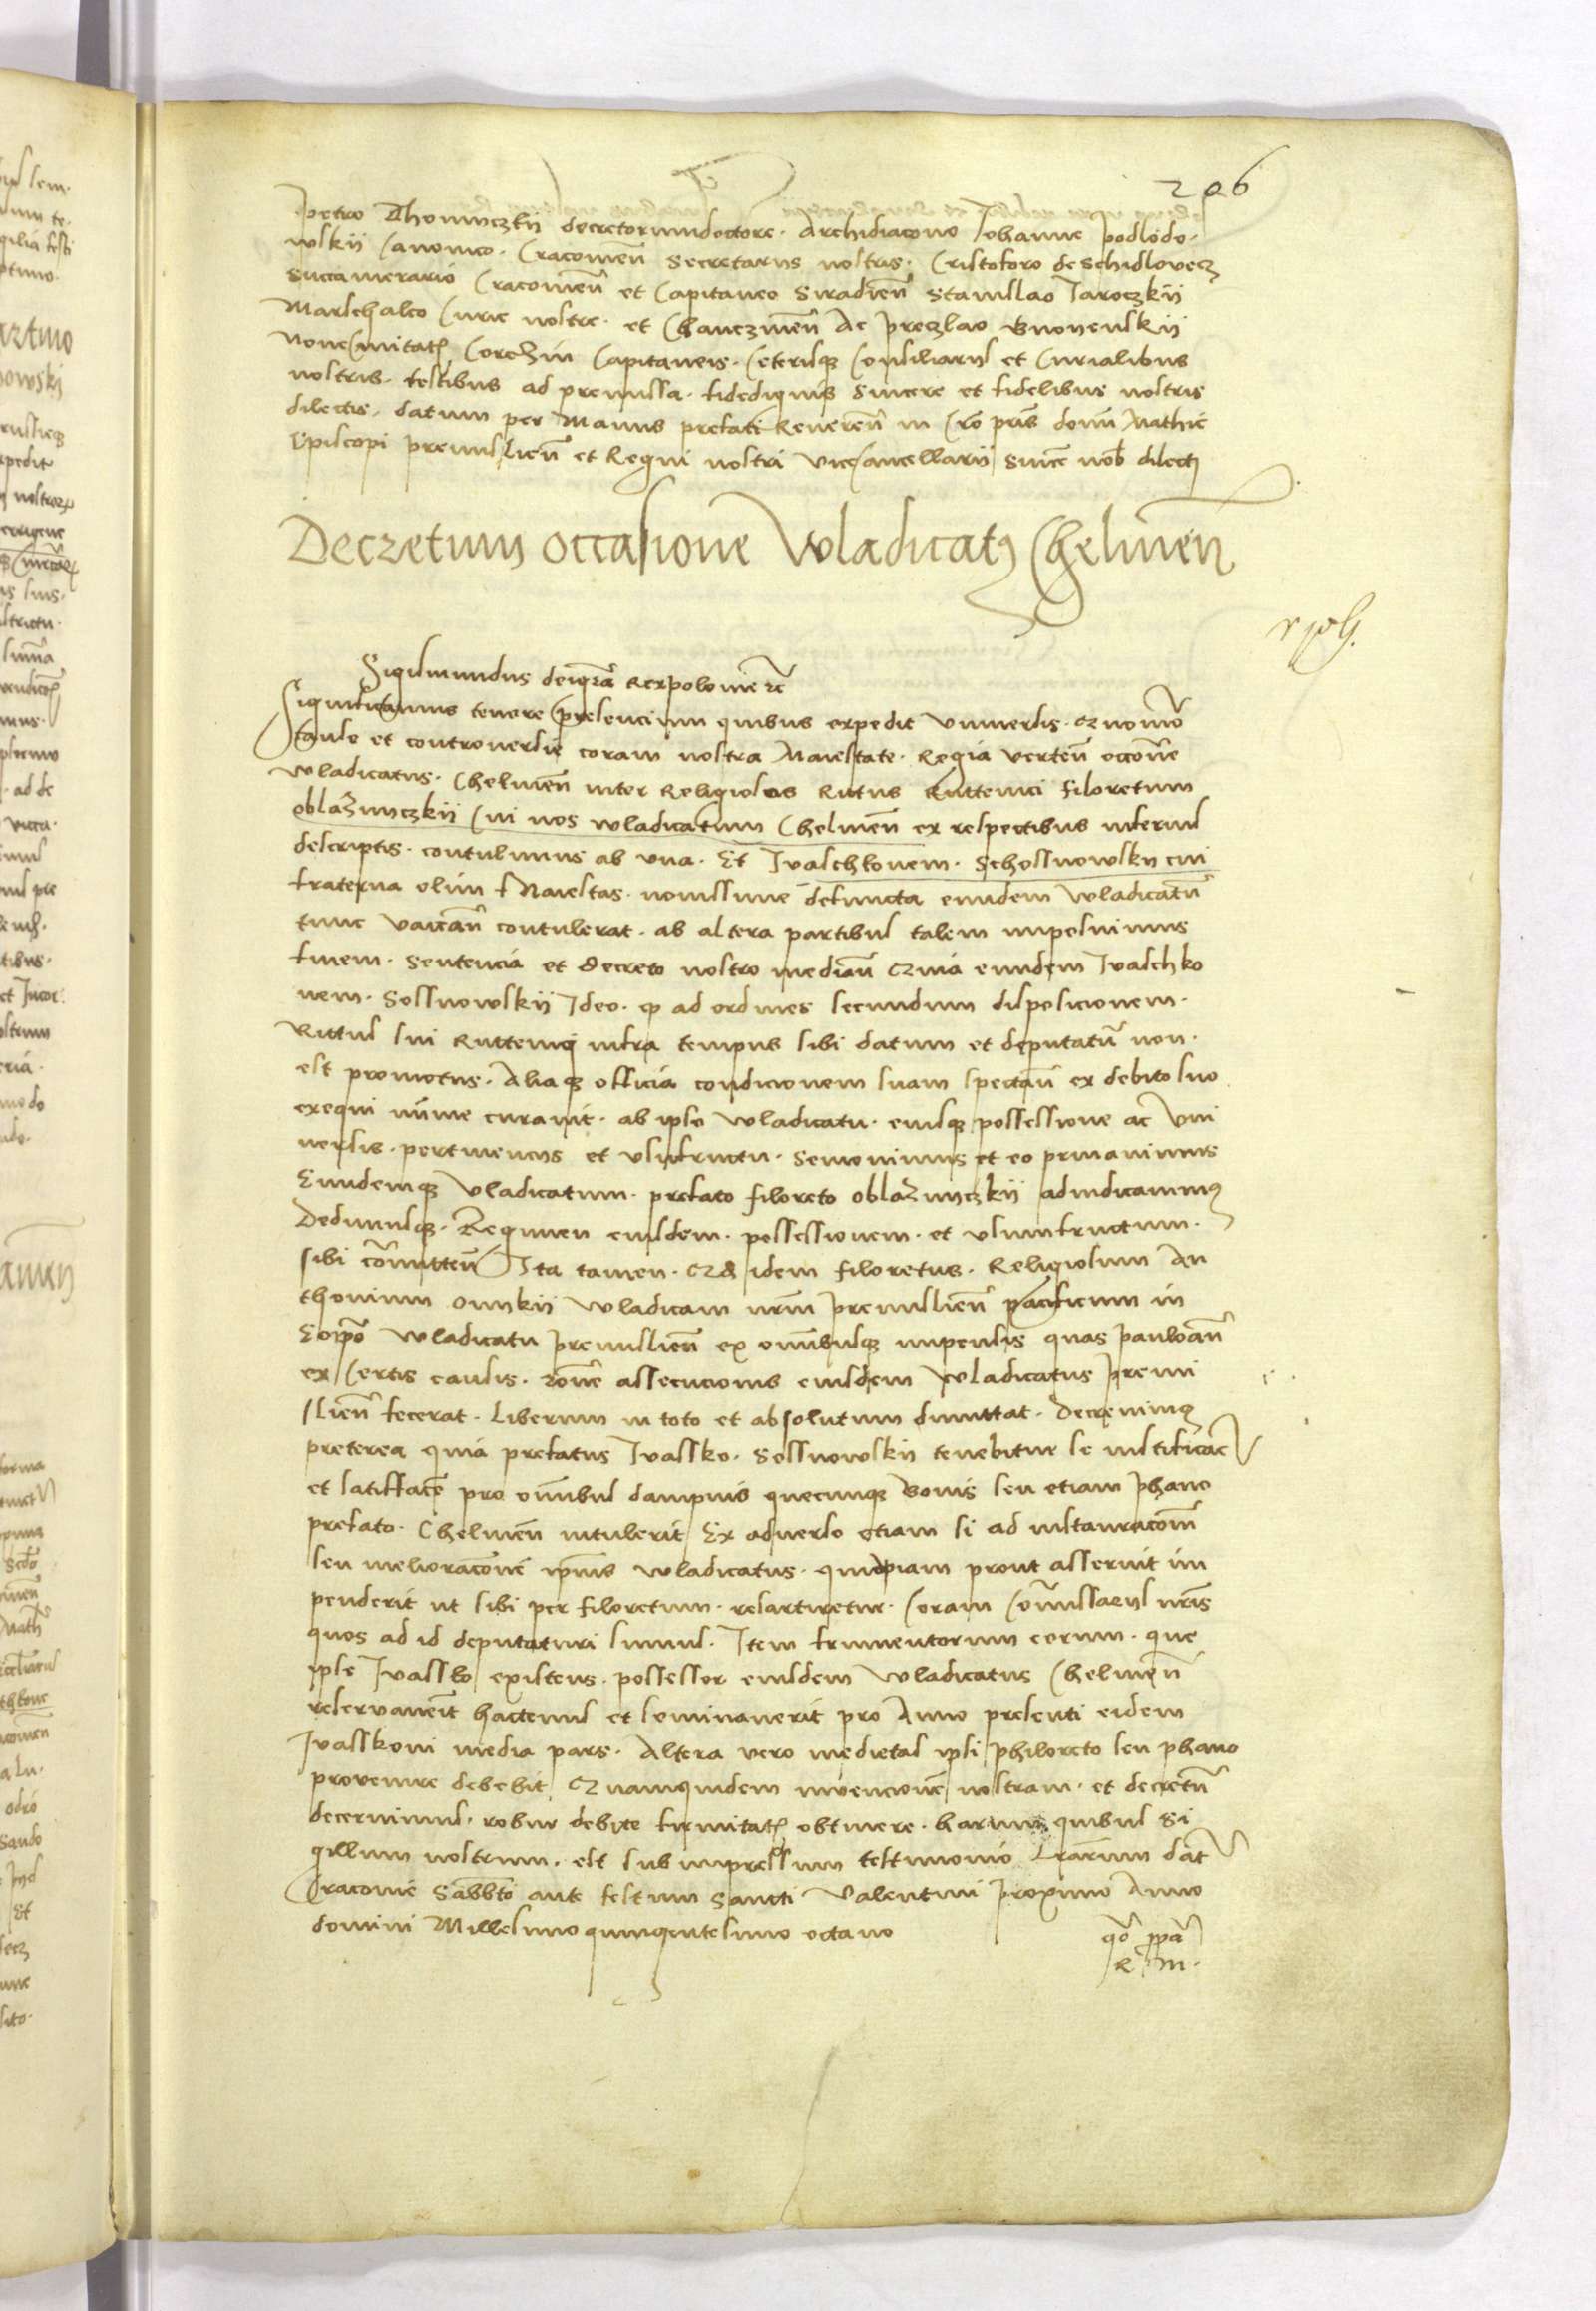 206
Petro Thomiczkii decretorumdoctore. Archidiacono Johanne podlodo.
wskii Canonico. Cracovien̄ Secretariis nostris. Cristoforo de Schidlovecz
Succamerario Cracovien̄ et Capitaneo Siradien̄ Stanislao Jaroczkii
Marschalco Curie nostre. et Chanczinen̄ Ac preczlao
Nove Civitatis Corczin Capitaneis. Ceterisque Consiliariis et Curialibus
nostris. testibus ad premissa. fidedignis Sincere et fidelibus nostris
dilectis. datum per Manus prefati Reveren̄ in Cr̄o pr̄is domini Mathie
Episcopi premislien̄ et Regni nostri viceCancellarii Sincē nob̄ dilecti
Decretum occasione Wladicatus Chelmen̄
Sigismundus deigr̄a Rexpolonie etc̄
Significamus tenore presencium quibus expedit Universis. Quomō
cause et controversie coram nostra Maiestate. Regia verten̄ occōne
wladicatus. Chelmen̄ inter Religiosos Ritus Ruttenici filoretum
oblaznyczkii Cui nos wladicatum Chelmen̄ ex respectibus inferius
descriptis. contulimus ab una. Et Ivaschkonem. Schossnowskii cui
fraterna olim Maiestas. novissime defuncta eundem wladicatū
tunc vacan̄ contulerat. ab altera partibus talem imposuimus
finem. Sentencia et decreto nostro median̄ Quia eundem Ivaschko
nem. Sossnowskii Ideo. quod ad ordines secundum disposicionem.
Rittus sui Ruttenici infra tempus sibi datum et deputatū non.
est promotus. Aliaque officia condicionem suam spectan̄ ex debito suo
exequi minime curavit. ab ipso wladicatu. eiusque possessione ac Uni
versis. pertinenciis et usufructu. Semovimus et eo privavimus
Eundemque Uladicatum. prefato filoreto oblaznyczkii adiudicavimus
Dedimusque. Regimen eiusdem. possessionem. et usumfructum.
sibi cōmitten̄ Ita tamen. Quod idem filoretus. Religiosum An
thonium Onnkii Wladicam nr̄m premislien̄ pacificum in
Eoip̄o wladicatu premislien̄ ex omnibusque impensis quas pauloan̄
ex Certis causis. rōne assecucionis eiusdem wladicatus premi
slien̄ fecerat. Liberum in toto et absolutum dimittat. Decrevimus
preterea quia prefatus Ivassko. Sossnowskii tenebitur se iustificac̄
et satisfacē pro om̄ibus dampnis quecunque Bonis seu etiam phano
prefato. Chelmen̄ intulerit Ex adverso etiam si ad instauracōem
seu melioracōnē ip̄ius wladicatus. quidpiam prout asseruit im
penderit ut sibi per filoretum. resarciretur. Coram Cōmissariis nr̄is
quos ad id deputaturi sumus. Item frumentorum eorum. que
ipse Ivassko existens. possessor eiusdem wladicatus Chelmen̄
reservaverit hactenus et seminaverit pro Anno presenti eidem
Ivasskoni media pars. Altera vero medietas ipsi philoreto seu phano
provenire debebit Quamquidem invencionē nostram. et decretū
decernimus. robur debite firmitatis obtinere. harum quibus Si
gillum nostrum. est subimpressum testimonio Lr̄arum dat̄
Cracovie Sabb̄to ante festum Sancti Valentini proximo Anno
domini Millesimo quingentesimo octavo
R M.